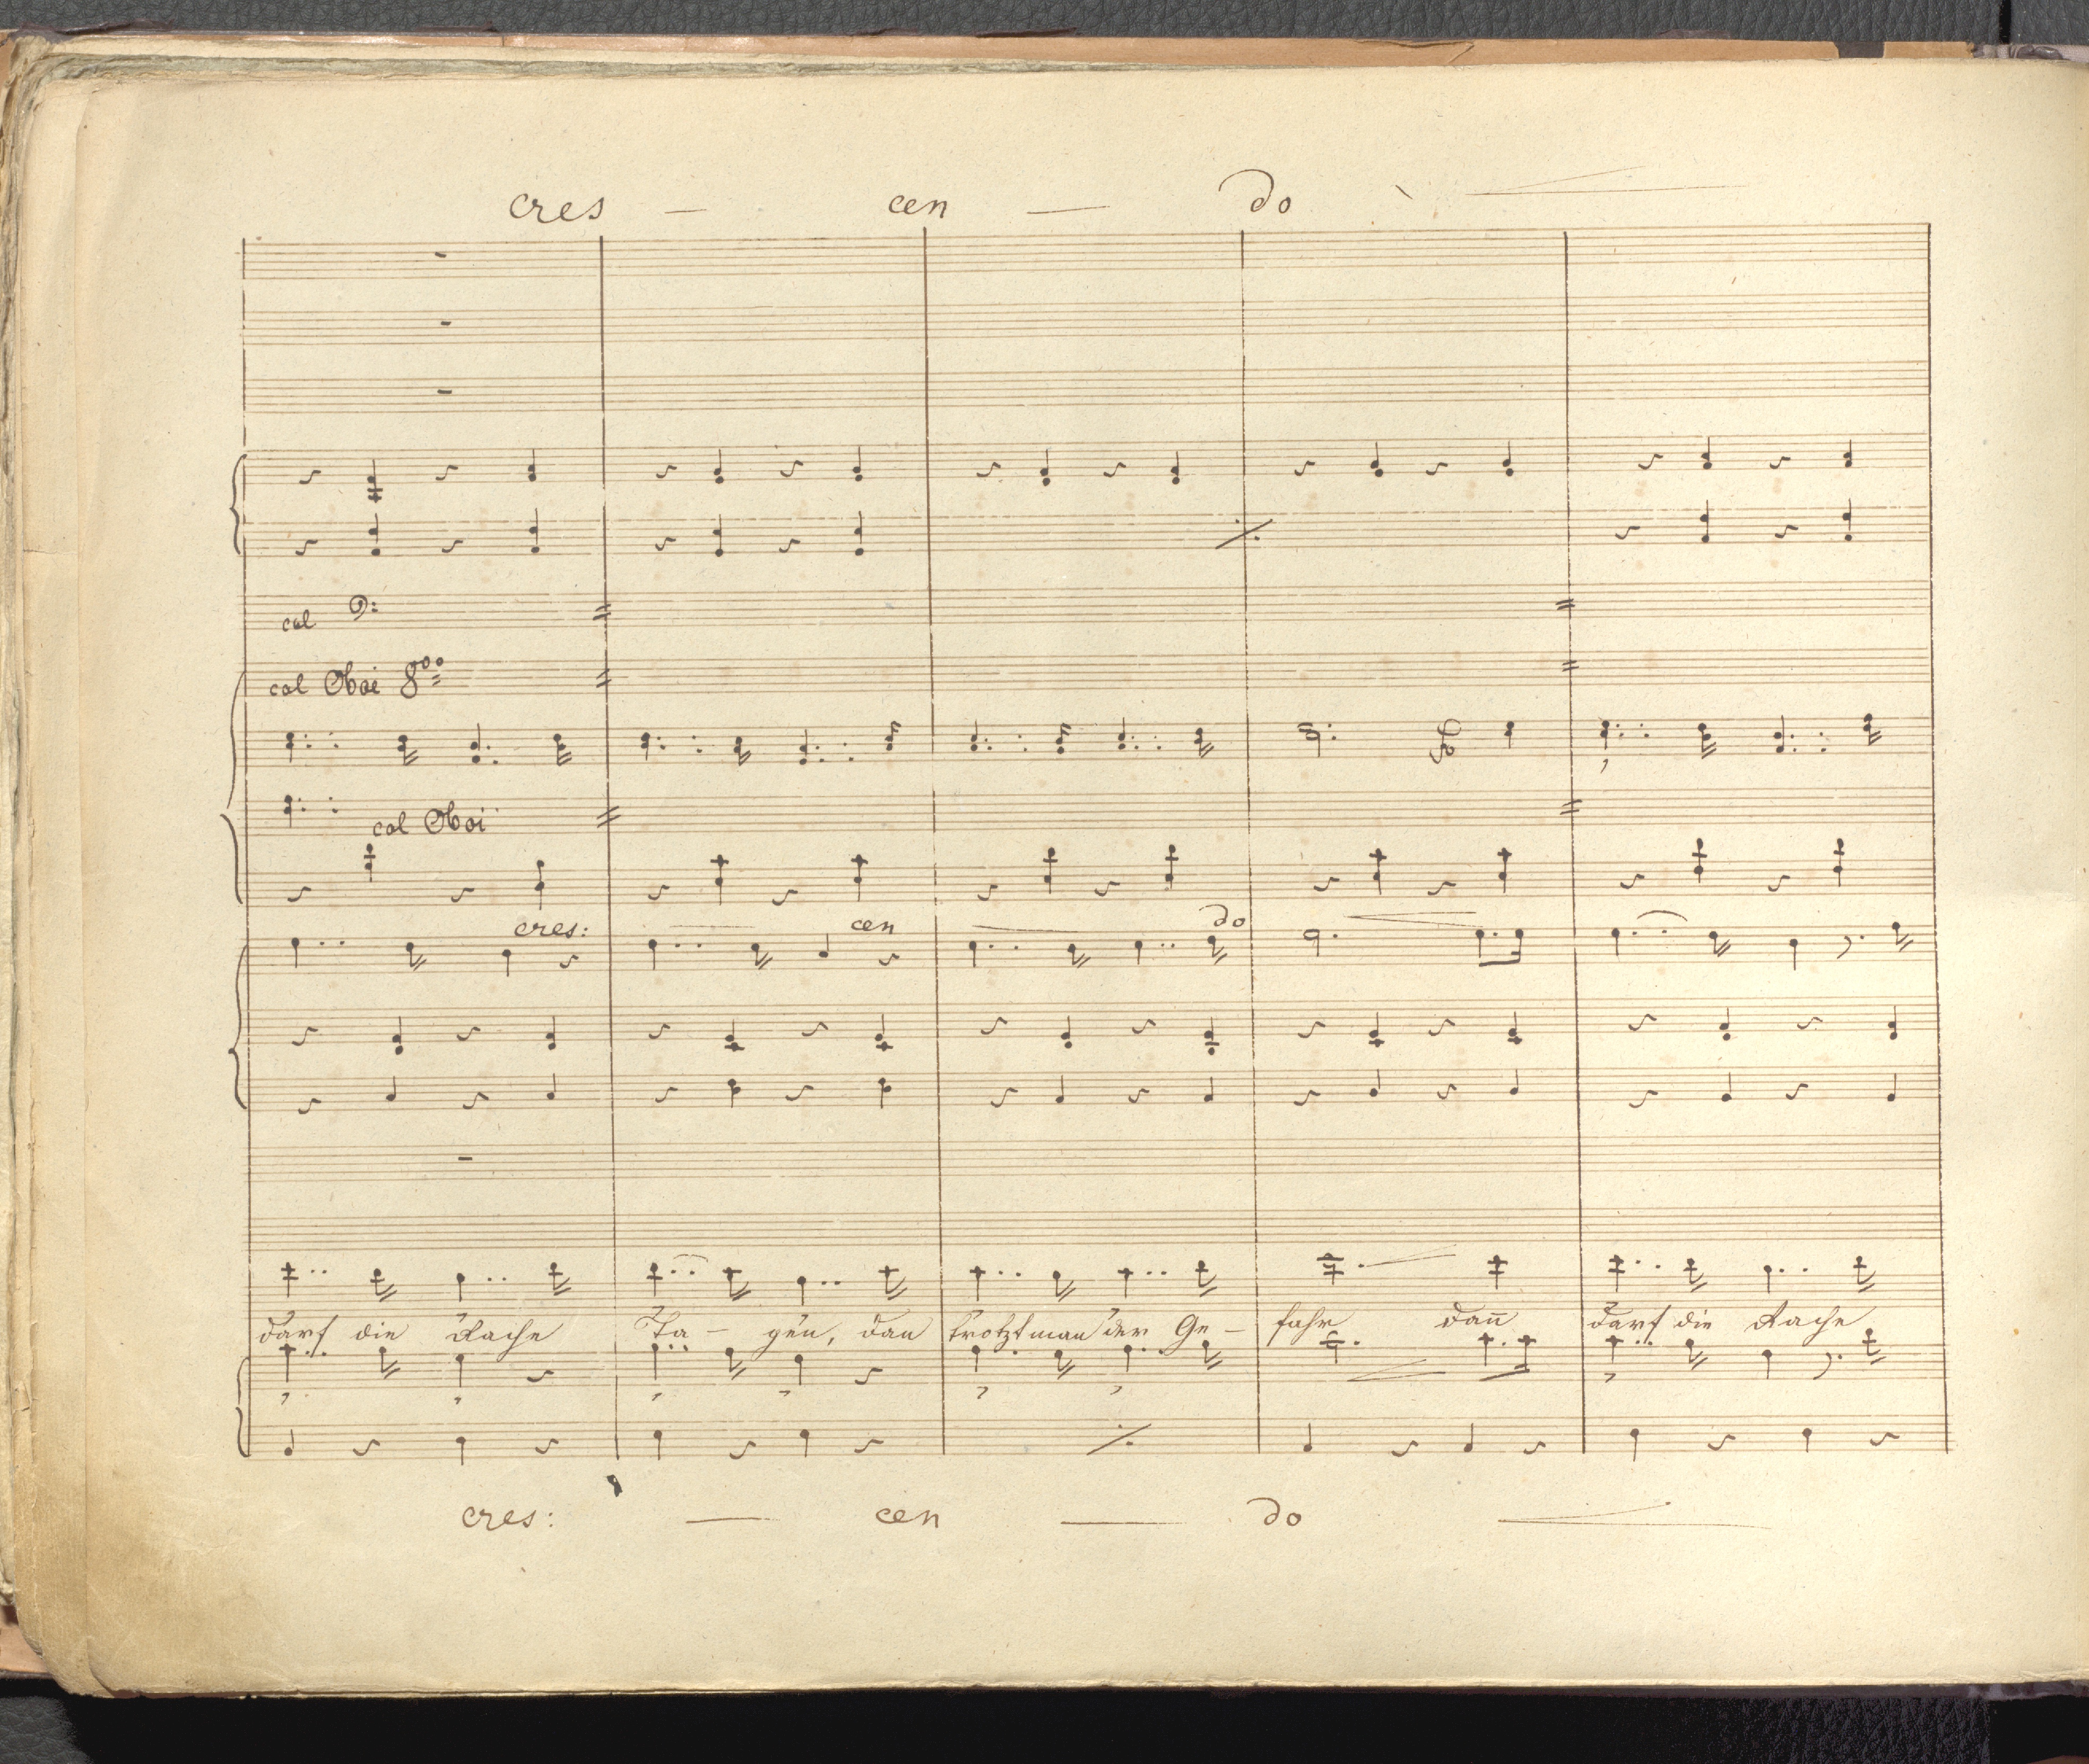 cres — cen — do
col
col Oboi 8
col Oboi
cres: cen do
darf die Rache Ta - gen, dan trotzt man der Ge - fahr dañ darf die Rache
cres: — cen — do